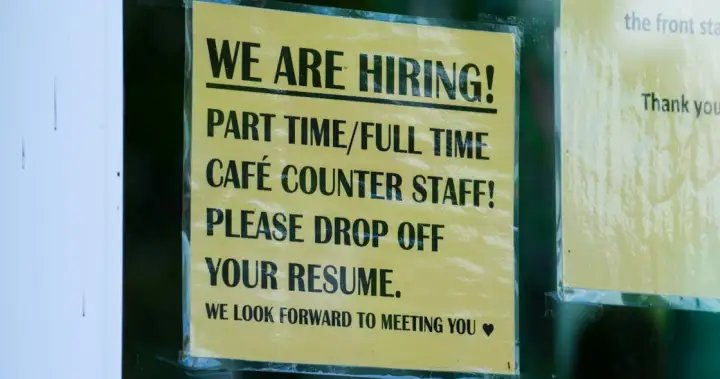 WE ARE HIRING!
PART TIME/FULL TIME
CAFÉ COUNTER STAFF!
PLEASE DROP OFF
YOUR RESUME.
WE LOOK FORWARD TO MEETING YOU ♥
the front
Thank you